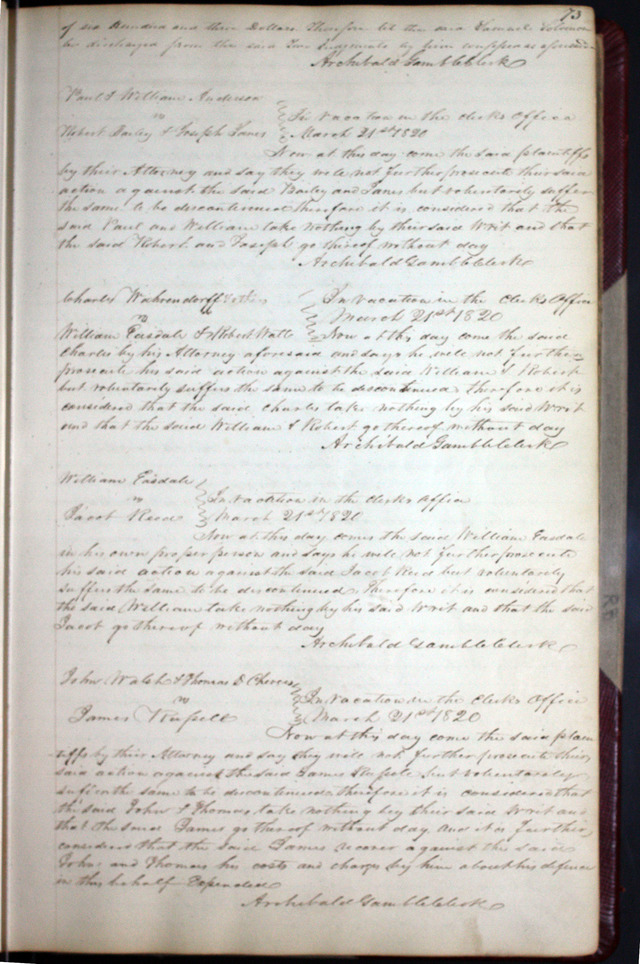 73
of six Hundred and three Dollars. Therefore let the said Samuel Solomon
be discharged from the said Two Judgments by him confessed as aforesaid
Archibald Gamble Clerk
Paul & William Anderson
vs
In vacation in the clerks Office
Robert Bailey & Joseph James
March 21st 1820
Now at this day come the said plaintiffs
by their Attorney and say they will not further prosecute their said
action against the said Bailey and James but voluntarily suffer
the same to be discontinued therefore it is considered that the
said Paul and William take nothing by their said Writ and that
the said Robert and Joseph go thereof without day
Archibald Gamble Clerk
Charles Wahrendorff
In vacation in the Clerks Office
vs
March 21st 1820
William Easdale & Robert Watts
Now at this day come the said
Charles by his Attorney aforesaid and says he will not further
prosecute his said action against the said William & Robert
but voluntarily suffers the same to be discontinued therefore it is
considered that the said Charles take nothing by his said Writ
and that the said William & Robert go thereof without day
Archibald Gamble Clerk
William Easdale
vs
In vacation in the Clerks Office
Jacob Reed
March 21st 1820
Now at this day comes the said William Easdale
in his own proper person and says he will not further prosecute
his said action against the said Jacob Reed but voluntarily
suffers the same to be discontinued, Therefore it is considered that
the said William take nothing by his said Writ and that the said
Jacob go thereof without day
Archibald Gamble Clerk
John Walsh & Thomas D
vs
In vacation in the Clerks Office
James
March 21st 1820
Now at this day come the said plain
tiffs by their Attorney and say they will not further prosecute their
said action against the said James but voluntarily
suffer the same to be discontinued therefore it is considered that
the said John & Thomas, take nothing by their said Writ and
that the said James go thereof without day and it is further
considered that the said James recover against the said
John and Thomas his costs and charges by him about his defence
in this behalf Expended
Archibald Gamble Clerk